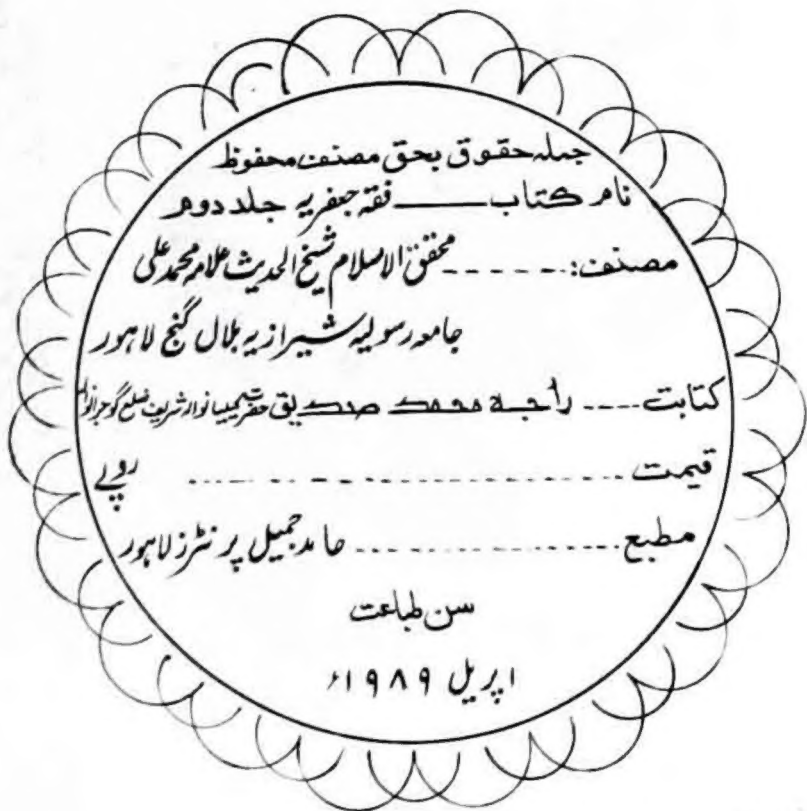 جملہ حقوق بحق مصنف محفوظ
نام کتاب ــــــ فقہ جعفریہ جلد دوم
مصنف: ------ محقق الاسلام شیخ الحدیث علامہ محمد علی
جامعہ رسولیہ شیرازیہ بلال گنج لاہور
کتابت ---- راجہ محمد صدیق حضرت کیلیانوالہ شریف ضلع گوجرانوالہ
قیمت .................... روپے
مطبع .................... حامد جمیل پرنٹرز لاہور
سن طباعت
اپریل ۱۹۸۹ء